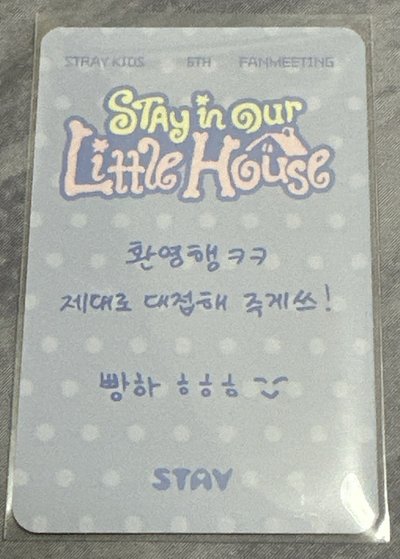 STRAY KIDS 5TH FANMEETING
STAY in OUR
Little House
환영행 ㅋㅋ
제대로 대접해 주게쓰!
빵하 ㅎㅎㅎ
STAY